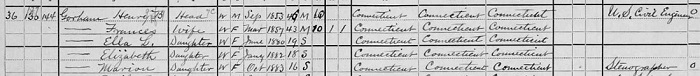 36 130 144 Gorham Henry B Head W M Sep 1853 M Connecticut Connecticut Connecticut U.S. Civil Engineer
— Frances Wife W F Mar 1857 43 M 20 1 1 Connecticut Connecticut Connecticut
— Ella L. Daughter W F June 1880 19 S Connecticut Connecticut Connecticut
— Elizabeth Daughter W F Jany 1882 18 S Connecticut Connecticut Connecticut
— Marion Daughter W F Oct 1883 16 S Connecticut Connecticut Connecticut Stenographer